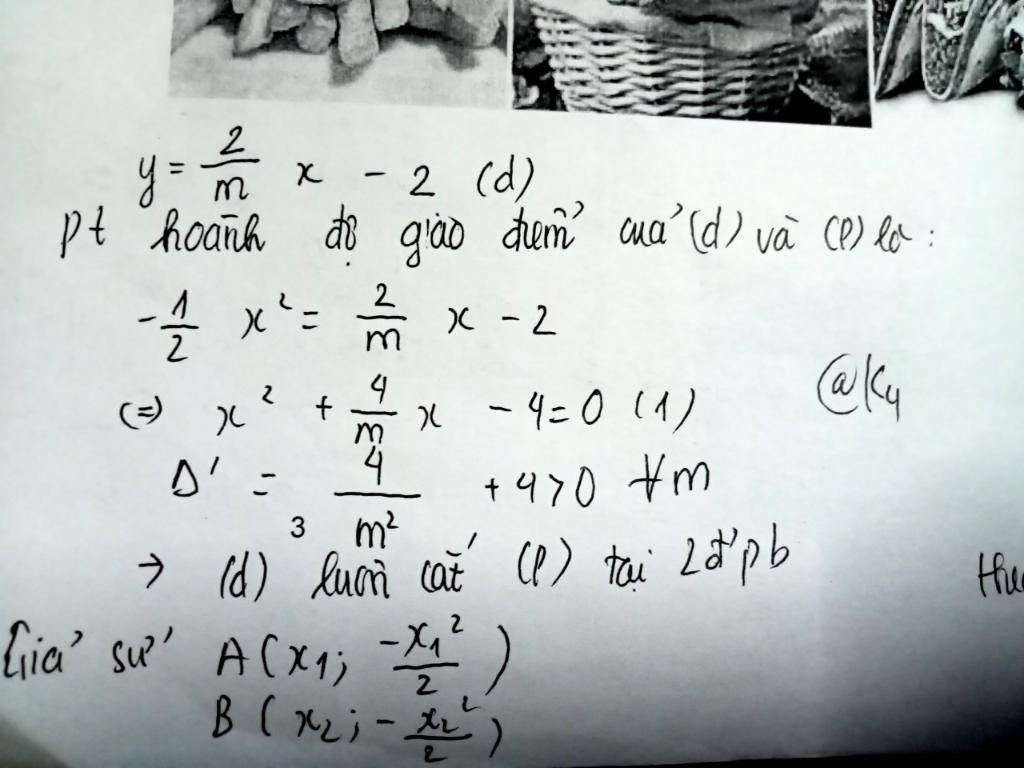 y = \frac{2}{m} x - 2 (d)
pt hoành độ giao điểm của (d) và (P) là :
-\frac{1}{2} x^2 = \frac{2}{m} x - 2
(=) x^2 + \frac{4}{m} x - 4 = 0 (1)
@K4
Δ' = \frac{4}{m^2} + 4 > 0 ∀m
3
→ (d) luôn cắt (P) tại 2đ' pb
Giả sử A(x_1; \frac{-x_1^2}{2})
B(x_2; -\frac{x_2^2}{2})